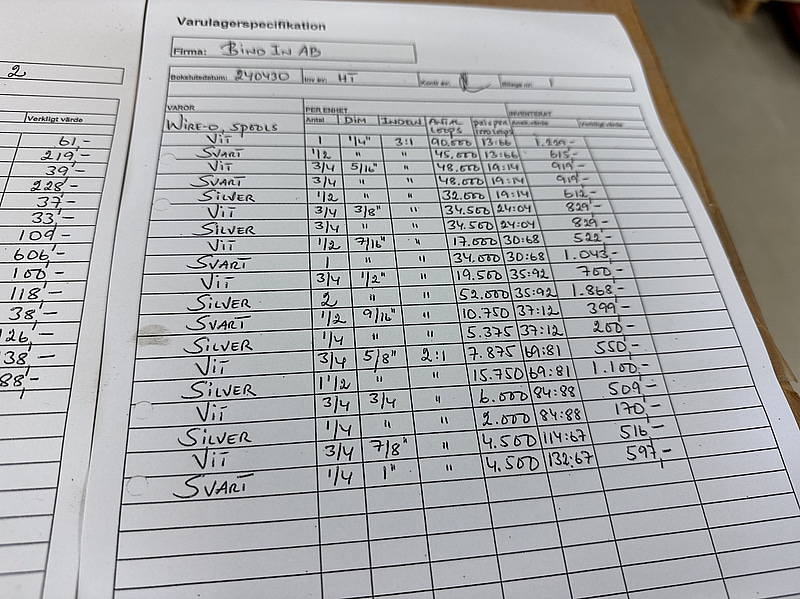 2
Verkligt värde
61,-
219,-
39,-
228,-
37,-
33,-
109,-
606,-
100,-
118,-
38,-
26,-
38,-
88,-
Varulagerspecifikation
Firma: BIND IN AB
Bokslutsdatum: 240430 Inv av: HT Kontr av: Bilaga nr: 1
VAROR PER ENHET INVENTERAT
Antal DIM INDELN ANTAL LOOPS pris per 1000 loops Verkligt värde
WIRE-O, SPOOLS
VIT 1 1/4" 3:1 90.000 13:66 1.229,-
SVART 1/2 " " 45.000 13:66 615,-
VIT 3/4 5/16" " 48.000 19:14 919,-
SVART 3/4 " " 48.000 19:14 919,-
SILVER 1/2 " " 32.000 19:14 612,-
VIT 3/4 3/8" " 34.500 24:04 829,-
SILVER 3/4 " " 34.500 24:04 829,-
VIT 1/2 7/16" " 17.000 30:68 522,-
SVART 1 " " 34.000 30:68 1.043,-
VIT 3/4 1/2" " 19.500 35:92 700,-
SILVER 2 " " 52.000 35:92 1.868,-
SVART 1/2 9/16" " 10.750 37:12 399,-
SILVER 1/4 " " 5.375 37:12 200,-
VIT 3/4 5/8" 2:1 7.875 69:81 550,-
SILVER 1 1/2 " " 15.750 69:81 1.100,-
VIT 3/4 3/4 " 6.000 84:88 509,-
SILVER 1/4 " " 2.000 84:88 170,-
VIT 3/4 7/8" " 4.500 114:67 516,-
SVART 1/4 1" " 4.500 132:67 597,-